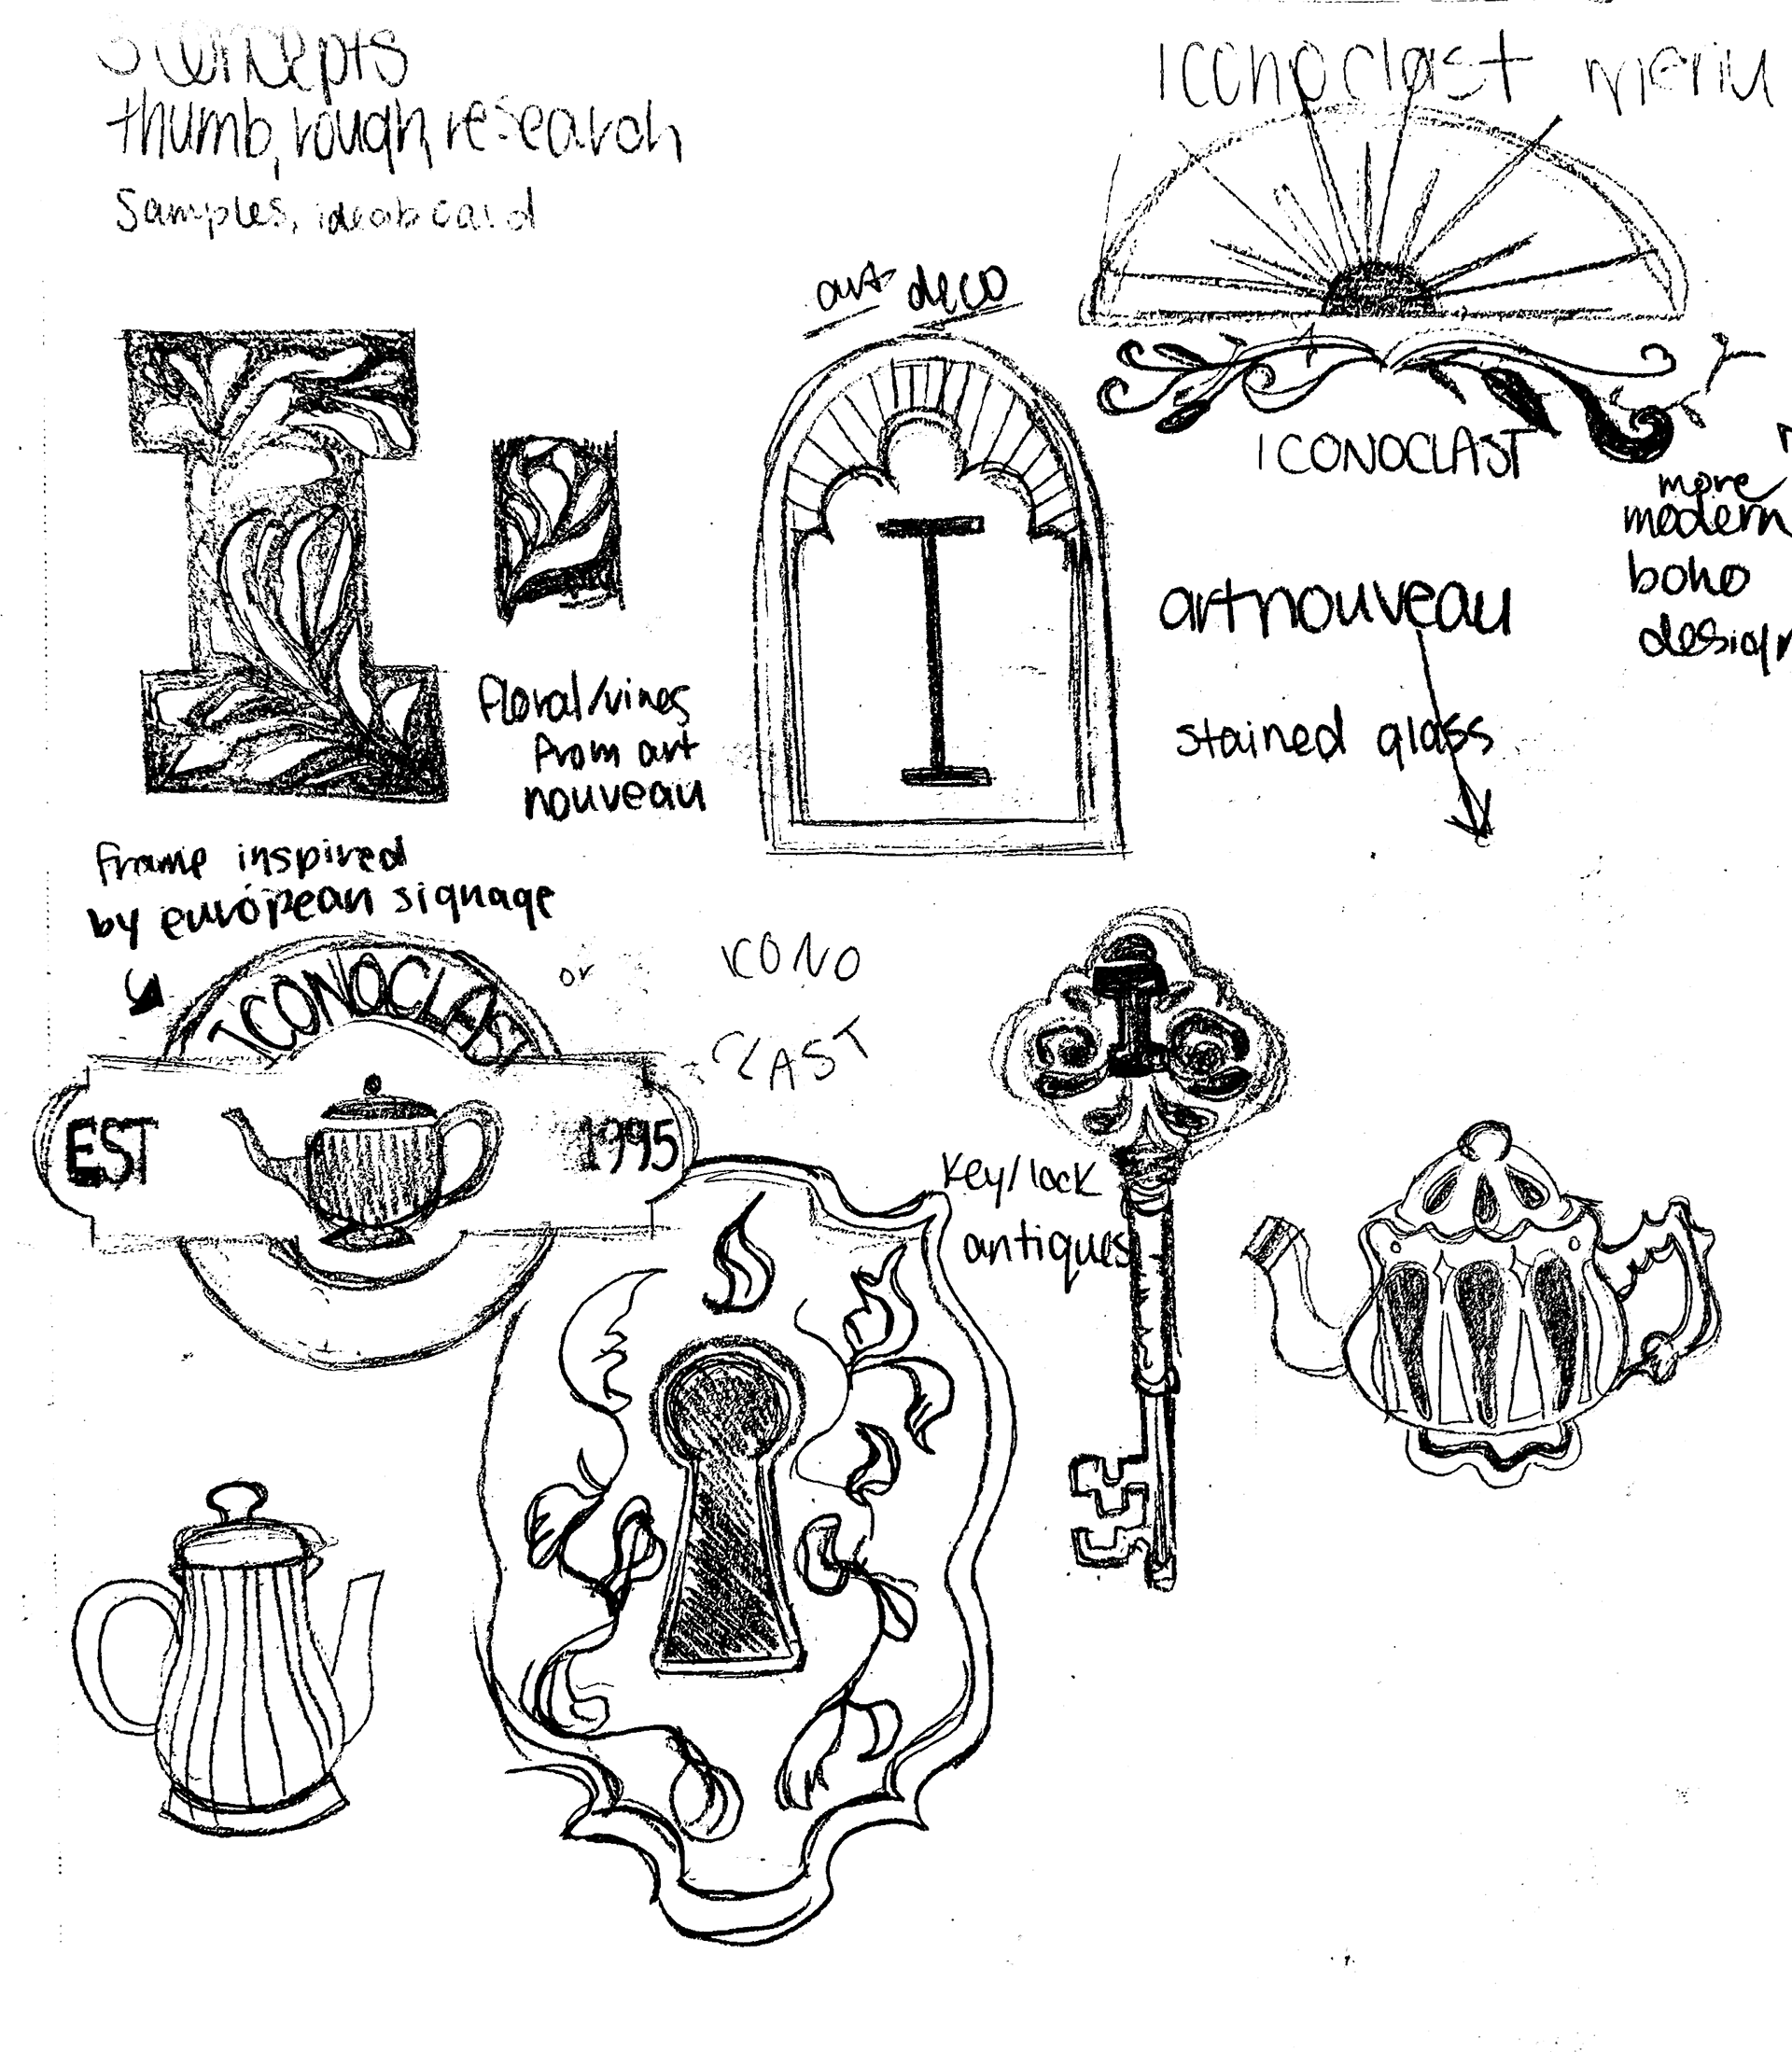 3 concepts
thumb, rough, research
Samples, ideaboard
Iconoclast menu
art deco
ICONOCLAST
more
modern
boho
design
artnouveau
stained glass
I
floral/vines
from art
nouveau
frame inspired
by european signage
ICONOCLAST
EST
1995
or
ICONO
CLAST
I
key/lock
antiques